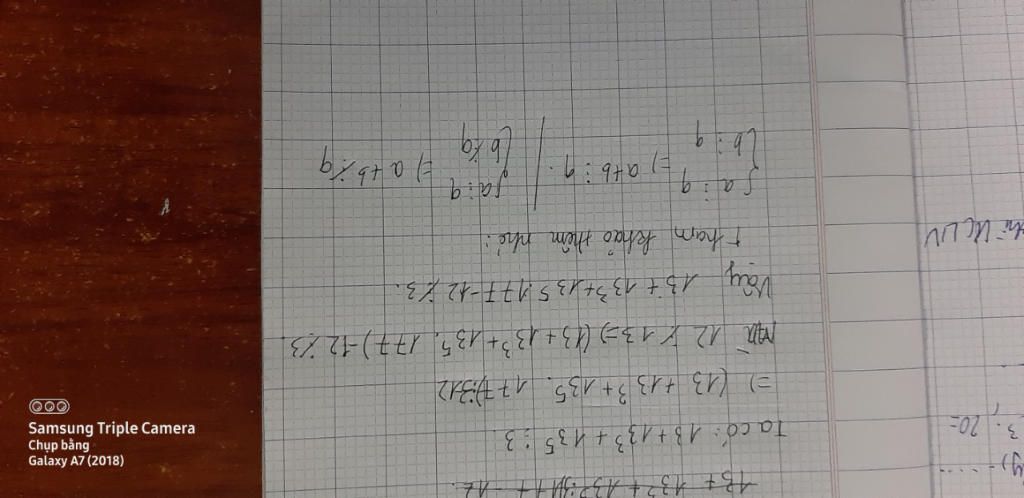 Ta có: 13 + 13³ + 13⁵ ⋮ 3.
=) (13 + 13³ + 13⁵. 177)
Mà 12 ⋮̸ 13 =) (13 + 13³ + 13⁵. 177) - 12 ⋮̸ 3.
Vậy 13 + 13³ + 13⁵. 177 - 12 ⋮̸ 3.
tham khảo thêm nhé:
{ a ⋮ 9
b ⋮ 9 =) a + b ⋮ 9. | { a ⋮ 9
b ⋮̸ 9 =) a + b ⋮̸ 9
3; 20 =
Samsung Triple Camera
Chụp bằng
Galaxy A7 (2018)